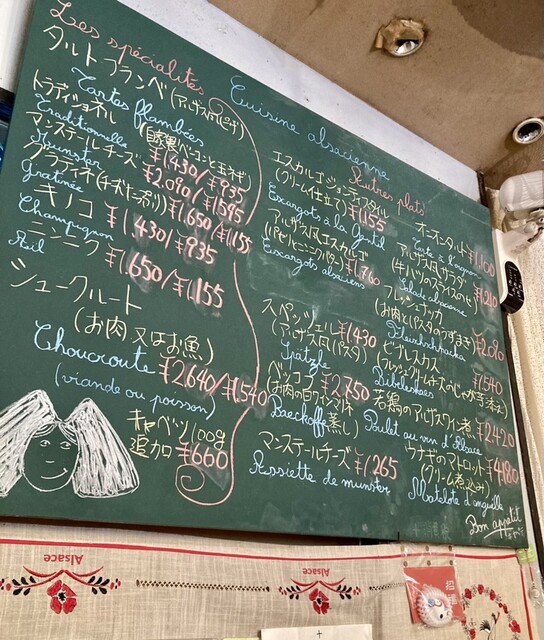 Les spécialités
タルト フランベ (アルザス風ピザ)
Tartes flambées
トラディショネル (自家製ベーコンと玉ネギ)
Traditionnelle ¥1430/¥935
マンステールチーズ
Munster ¥2.090/¥1595
グラティネ(チーズたっぷり)
Gratinée ¥1.650/¥1.155
キノコ
Champignon ¥1.430/¥935
ニンニク
Ail ¥1.650/¥1.155
シュークルート
(お肉又はお魚)
Choucroute ¥2.640/¥1.540
(viande ou poisson)
キャベツ100g
追加 ¥660
Cuisine alsacienne
Autres plats
エスカルゴ
(クリーム仕立て) ¥1155
Escargots à la
アルザス風エスカルゴ
¥1.760
Escargots alsaciens
スペッツェル ¥1430
(アルザス風パスタ)
Spätzle
ベッコフ ¥2.750
(お肉の白ワイン
蒸し)
Baeckoffe
マンステールチーズ ¥1265
Assiette de munster
オニオンタルト ¥1.100
Tarte à l'oignon
アルザス風サラダ
¥1.210
Salade alsacienne
フレッシュナッカ
(お肉とパスタのうずまき) ¥2.090
Fleischschnacka
ビブレスカス
¥1.540
Bibeleskaes
若鶏のアルザスワイン煮
Poulet au vin d'Alsace ¥2.420
ウナギのマトロット
(クリーム煮込み) ¥4.180
Matelote d'anguille
Bon appétit
Alsace
Alsace
招福